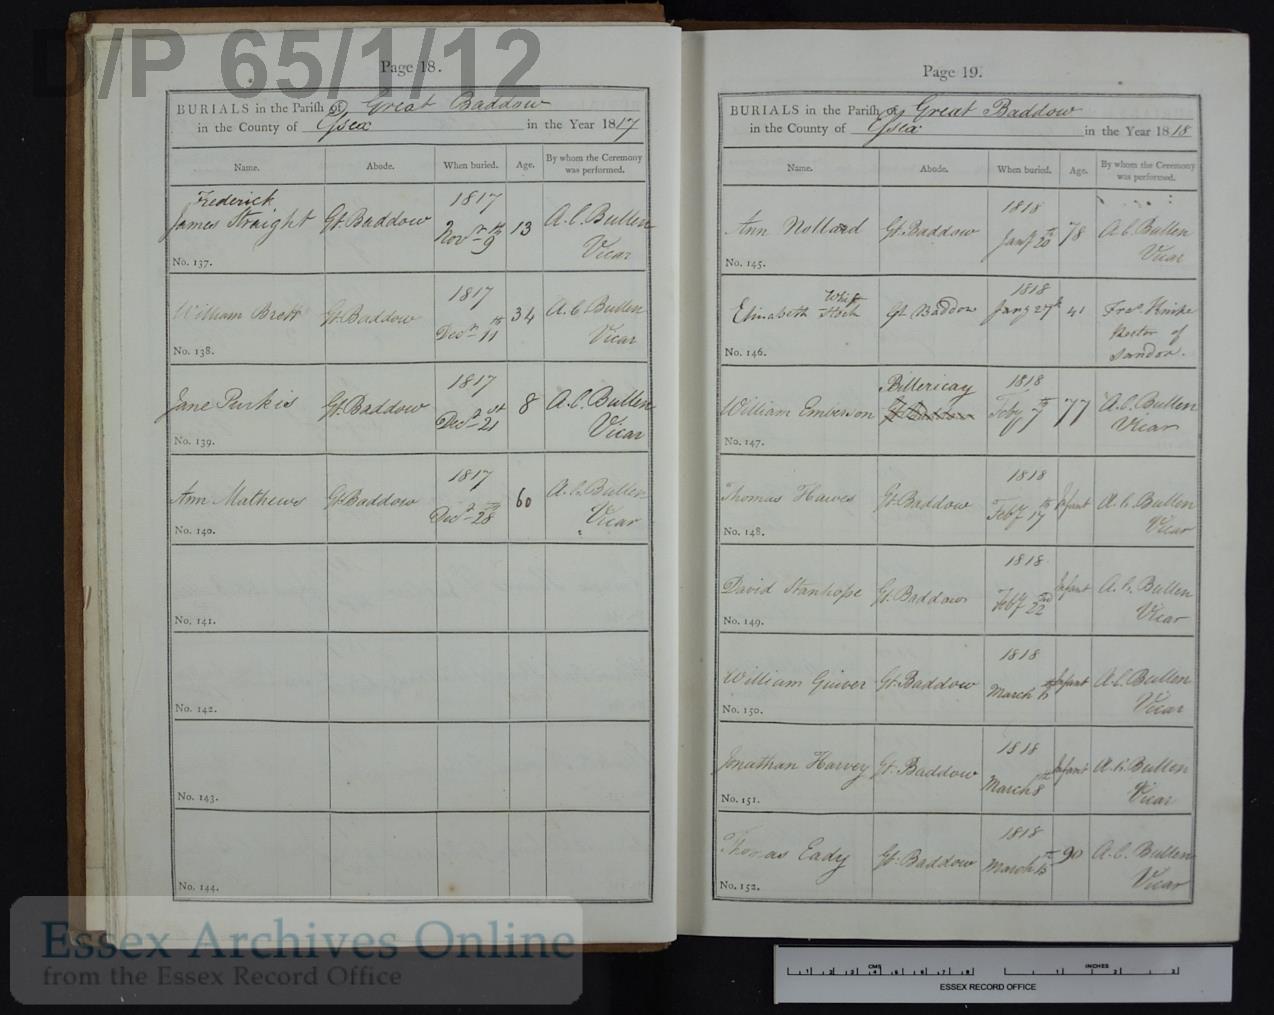 D/P 65/1/12
Page 18.
BURIALS in the Parish of Great Baddow
in the County of Essex in the Year 1817
Name. Abode. When buried. Age. By whom the Ceremony was performed.
Frederick 1817
James Straight Gt. Baddow Novr 9th 13 A.C. Bullen
Vicar
No. 137.
1817
William Brett Gt. Baddow Decr 11th 34 A.C. Bullen
Vicar
No. 138.
1817
Jane Purkis Gt. Baddow Decr 21st 8 A.C. Bullen
Vicar
No. 139.
1817
Ann Mathews Gt. Baddow Decr 28th 60 A.C. Bullen
Vicar
No. 140.
No. 141.
No. 142.
No. 143.
No. 144.
Page 19.
BURIALS in the Parish of Great Baddow
in the County of Essex in the Year 1818
Name. Abode. When buried. Age. By whom the Ceremony was performed.
1818
Ann Gt. Baddow Jany 20th 78 A.C. Bullen
Vicar
No. 145.
1818
Elizabeth Gt. Baddow Jany 27th 41
Rector of
Sandon.
No. 146.
Billericay 1818
William Emberson Gt. Baddow Feby 7th 77 A.C. Bullen
Vicar
No. 147.
1818
Thomas Hawes Gt. Baddow Feby 17th Infant A.C. Bullen
Vicar
No. 148.
1818
David Stanhope Gt. Baddow Feby 22nd Infant A.C. Bullen
Vicar
No. 149.
1818
William Guiver Gt. Baddow March Infant A.C. Bullen
Vicar
No. 150.
1818
Jonathan Harvey Gt. Baddow March 8th Infant A.C. Bullen
Vicar
No. 151.
1818
Thomas Eady Gt. Baddow March 15th 90 A.C. Bullen
Vicar
No. 152.
Essex Archives Online
from the Essex Record Office
CMS INCHES
ESSEX RECORD OFFICE